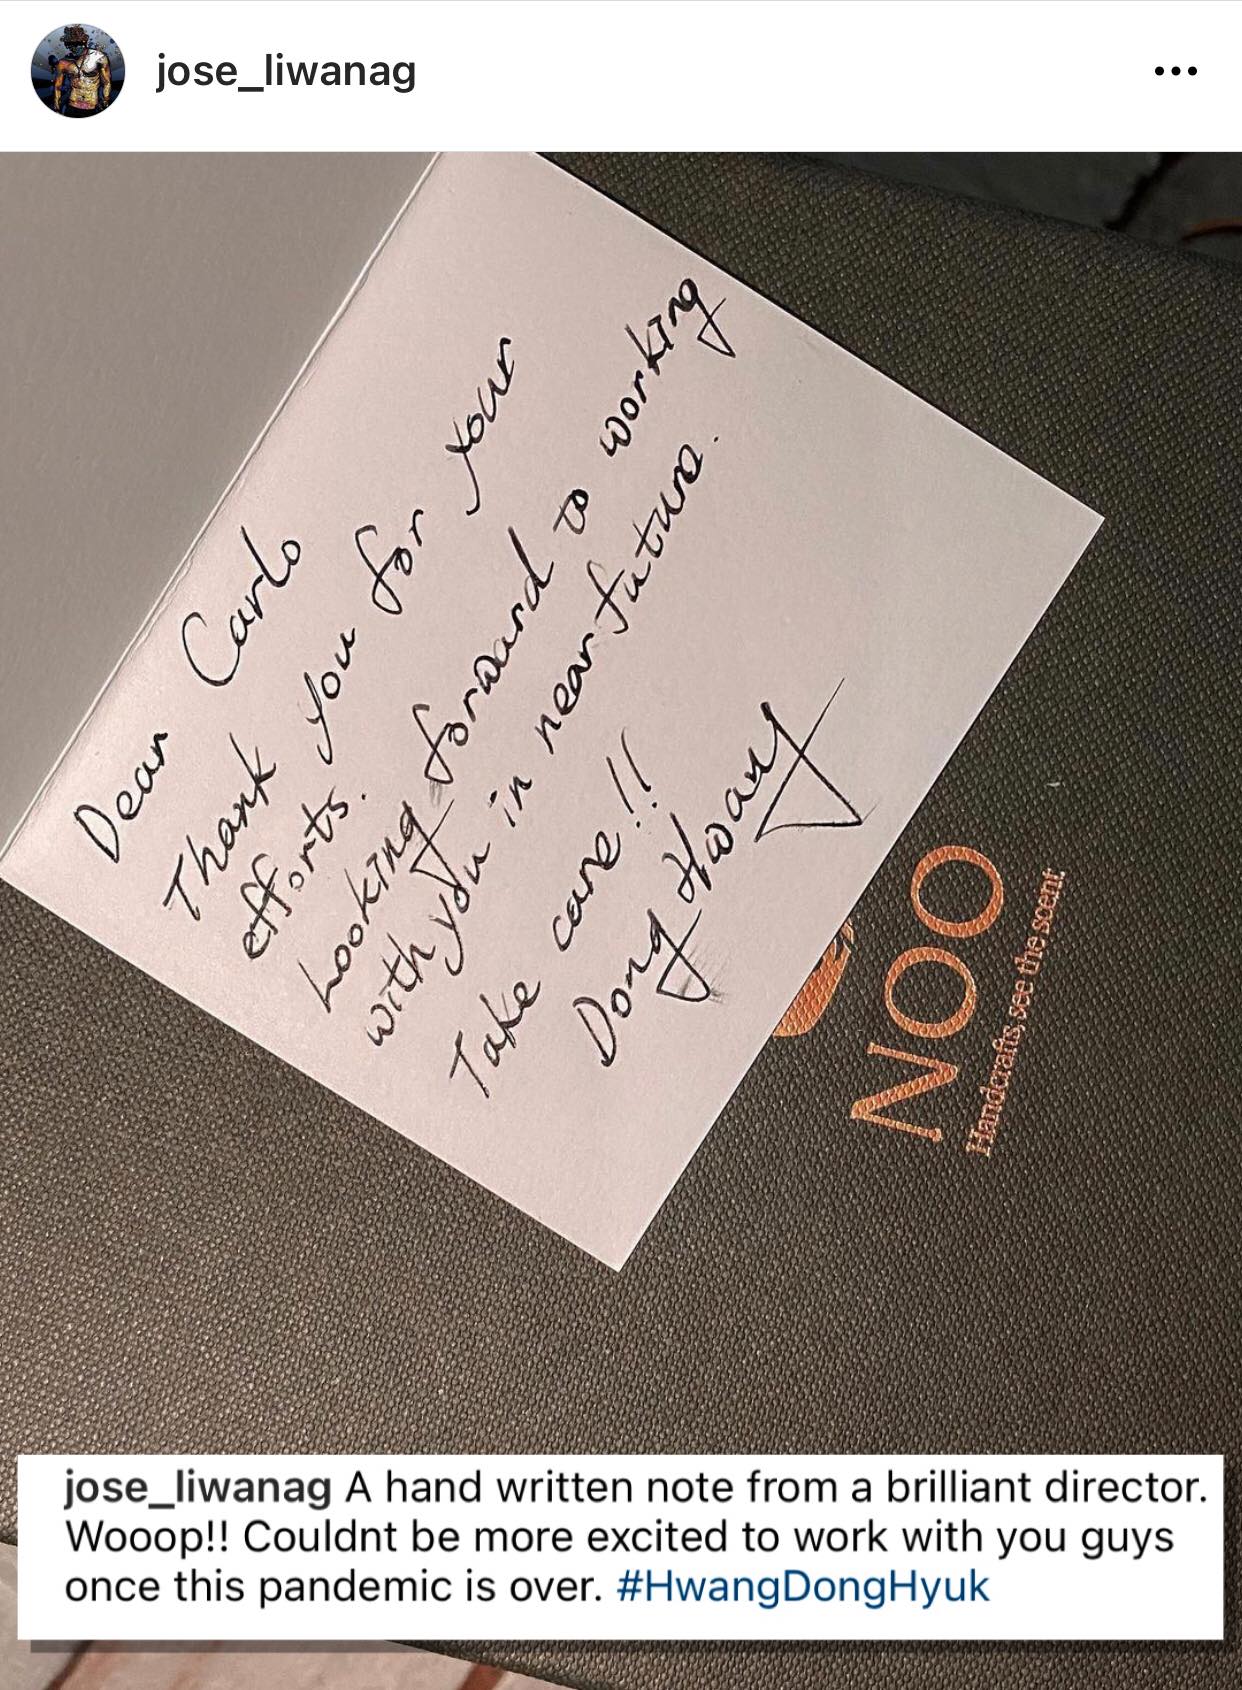 jose_liwanag
Dear Carlo
Thank you for your
efforts.
Looking forward to working
with you in near future.
Take care!!
Dong Hwang
NOO
Handcrafts, see the scent
jose_liwanag A hand written note from a brilliant director.
Wooop!! Couldnt be more excited to work with you guys
once this pandemic is over. #HwangDongHyuk